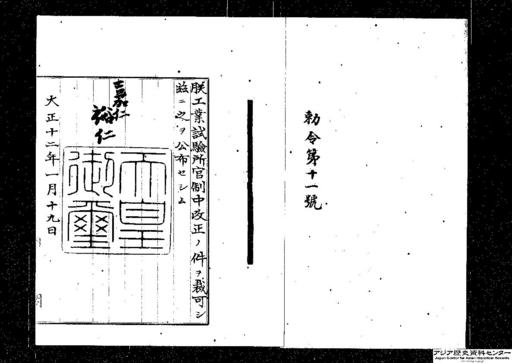 勅令第十一號
朕工業試驗所官制中改正ノ件ヲ裁可シ
玆ニ之ヲ公布セシム
嘉仁
裕仁
天皇
御璽
大正十二年一月十九日
アジア歴史資料センター
Japan Center for Asian Historical Records